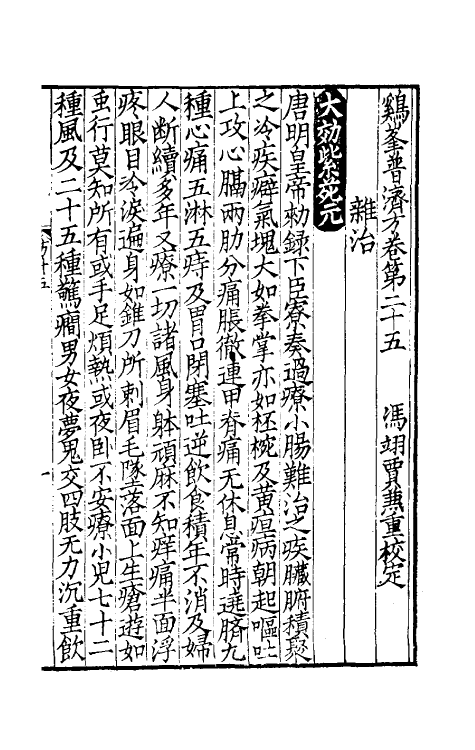 鷄峯普濟方卷第二十五　馮翊賈兼重校定
雜治
大効紫死元
唐明皇帝勅録下臣寮奏過療小腸難治之疾臟腑積聚
之冷疾癖氣塊大如拳掌亦如柸椀及黄疸病朝起嘔吐
上攻心膈兩肋分痛脹徹連甲脊痛无休息常時遶臍九
種心痛五淋五痔及胃口閉塞吐逆飲食積年不消及婦
人断續多年又療一切諸風身躰頑麻不知痒痛半面浮
疼眼目冷淚遍身如錐刀所刺眉毛墜落面上生瘡遊如
虫行莫知所有或手足煩熱或夜卧不安療小兒七十二
種風及二十五種驚癎男女夜夢鬼交四肢无力沉重飲
方廿五
一